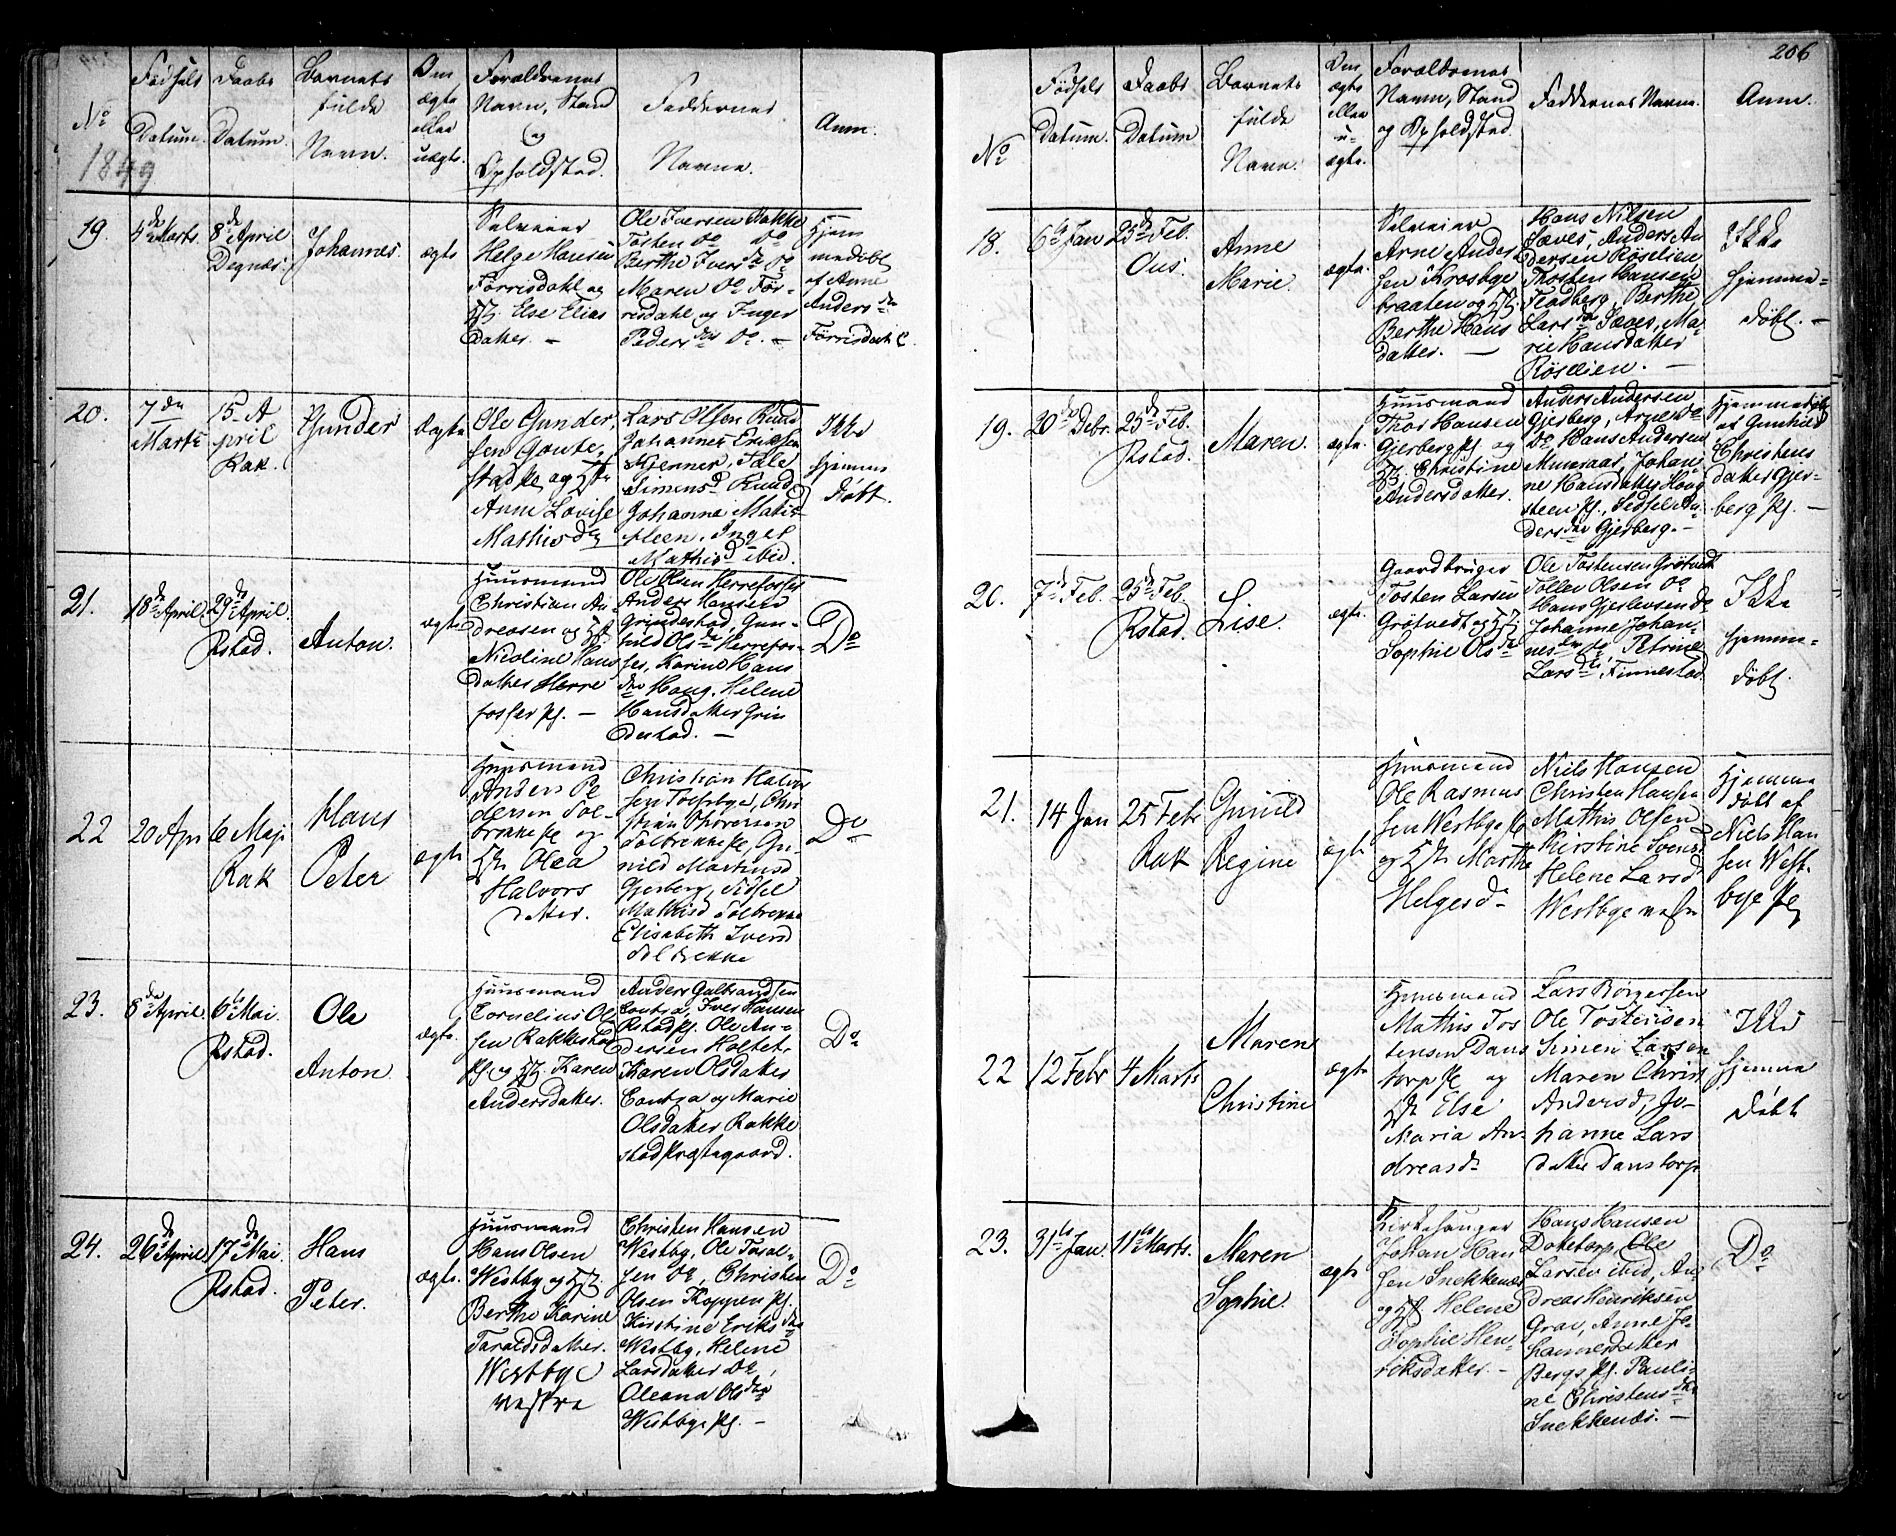 206
No
1849
Fødsels
Datum.
Daabs
Datum.
Barnets
fulde
Navn.
Om
ægte
eller
uægte.
Forældrenes
Navn, Stand
og
Opholdsted.
Faddernes
Navne.
Anm.
19.
4de Marts.
8de April
Degnæs.
Johannes.
ægte
Selveier
Helge Hansen
Förrisdahl og
Else Elias
datter. —
Ole Iversen Rakke
Tosten Do Do
Berthe Iversda Do
Maren Do För-
risdahl og Inger
Pedersda Do. —
Hjem
medøbt
af Anne
Andersda
Förrisdahl.
20.
7de
Marts
15. A
pril
Rak.
Gunder
Ægte
Ole Gunder
sen Goute,
stadpl og
Anne Lovise
Mathisda
Lars Olsen Ruud
Johannes Eriksen
Kjenner, Tale
Simensd Ruud
Johanne Mathis
Inger
Mathisd ibid.
Ikke
hjemme
døbt.
21.
18de April
29de April.
Rstad.
Anton.
ægte
Huusmand
Christian An
dreasen og
Nicoline Hans
datter Herre
fosser pl. —
Ole Olsen Herrefosser
Anders Hansen
Grindestad, Gun-
hild Olsda Herrefos-
ser, Karine Hans
da Haug, Helene
Hansdatter Grin
destad. —
Do
22
20 Apr
6 Maj
Rak
Hans
Peter
ægte
Huusmand
Anders Pe
dersen Tol-
brekke og
Olea
Halvors
datter.
Christian Halvor
sen Tolfsbye, Chri
stian Thoresen
Tolbrekke pl, Gu-
nild Martinsd
Gjerberg, Sidsel
Mathisd Tolbrekke
Elisabeth Iversd
Tolbrekke
Do
23.
8de April.
6te Mai.
Rstad.
Ole
Anton.
ægte.
Huusmand
Cornelius Ol
sen Rakkestad
pl. og Karen
Andersdatter.
Anders Gulbrandsen
Contra, Iver Hansen
Rstad pl. Ole An-
dersen Holtet,
Karen Olsdatter
Contra og Marie
Olsdatter Rakke
stad Præstegaard.
Do
24.
26de April
17de Mai
Rstad.
Hans
Peter.
ægte.
Huusmand
Hans Olsen
Westby og
Berthe Karine
Taraldsdatter.
Westbye
vestre
Christen Hansen
Westby, Ole Taral-
sen Do, Christen
Olsen Koppen pl.
Kirstine Eriksda
Westby, Helene
Larsdatter Do,
Oleana Olsda
Westbye pl. —
Do
No
Fødsels
Datum.
Daabs
Datum
Barnets
fulde
Navn.
Om
ægte
eller
u-
ægte.
Forældrenes
Navn, Stand
og Opholdsted.
Faddernes Navne.
Anm.
18.
6te Jan
25de Feb.
Ous.
Anne
Marie.
ægte.
Selveier
Arne Ander
sen Krosbye
braaten og
Berthe Hans
datter. —
Hans Nilsen
Sæves, Anders An
dersen Röselien,
Thosten Hansen
Flodberg, Berthe
Larsda Sæves, Ma-
rie Hansdatter
Röselien. —
Ikke
hjemme-
døbt. —
19.
20de Febr.
25de Feb.
Rstad.
Maren.
ægte.
Huusmand
Thor Hansen
Gjerberg pl. og
Christine
Andersdatter.
Anders Andersen
Gjerberg, Arne Do
Do Hans Andersen
Munsaas, Johan-
ne Hansdatter Haug
steen pl., Sidsel An-
dersda Gjerberg. —
Hjemmedøbt
af Gunhild
Christens
datter Gjer-
berg pl. —
20.
7de Feb.
25de Feb.
Rstad.
Lise.
ægte.
Gaardbruger
Tosten Larsen
Grötvedt og
Sophie Olsda
Ole Tostensen Grötvedt
Tollev Olsen Do
Hans Gjerlevsen Do
Johanne Johan-
nesda Do Petrine
Larsda, Finnestad
Ikke
hjemme-
døbt.
21.
14 Jan
25 Febr
Rak
Gunild
Regine
ægte
Huusmand
Ole Rasmus
sen Westbye pl
og Marthe
Helgesd
Niels Hansen
Christen Hansen
Mathis Olsen
Kirstine Svensd
Helene Larsd
Westbye vestre
Hjemme
døbt af
Niels Han
sen West-
bye pl
22
12 Febr
4 Marts
Maren
Christine
ægte
Huusmand
Mathis Tos
tensen Dans
torp pl og
Else
Maria An-
dreasd
Lars Börgersen
Ole Tostensen
Simen Larsen
Maren Christ
Andersd, Jo-
hanne Lars
datter Danstorp
Ikke
hjemme
døbt
23.
31te Jan.
11te Marts.
Maren
Sophie.
ægte
Kirkesanger
Johan Han
sen Snekkenæs
og Helene
Sophie Hen-
riksdatter. —
Hans Hansen
Daketorp, Ole
Larsen ibid, An-
dreas Henriksen
Grav, Anne Jo-
hannesdatter
Bergs pl. Pauli-
ne Christensda
Snekkenæs. —
Do